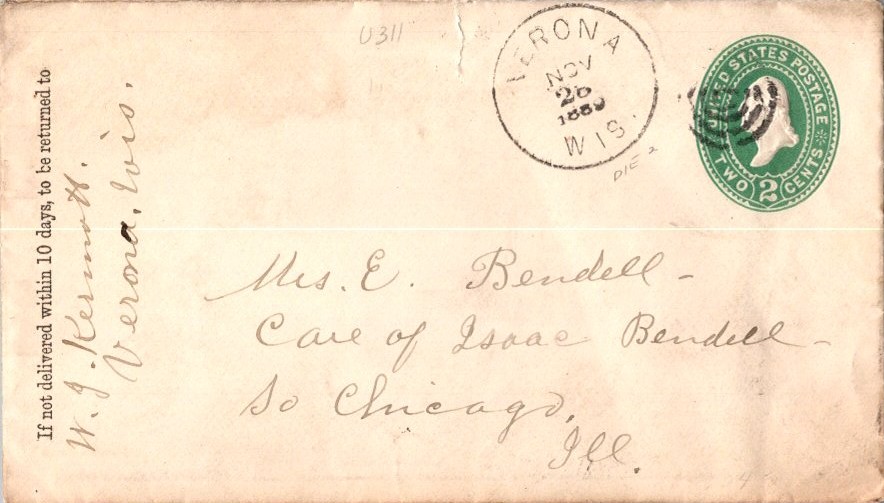 U311
VERONA
NOV
26
1889
WIS.
DIE 2
UNITED STATES POSTAGE
TWO 2 CENTS
If not delivered within 10 days, to be returned to
W. J. Kermott.
Verona, Wis.
Mrs. E. Bendell -
Care of Isaac Bendell -
So Chicago,
Ill.